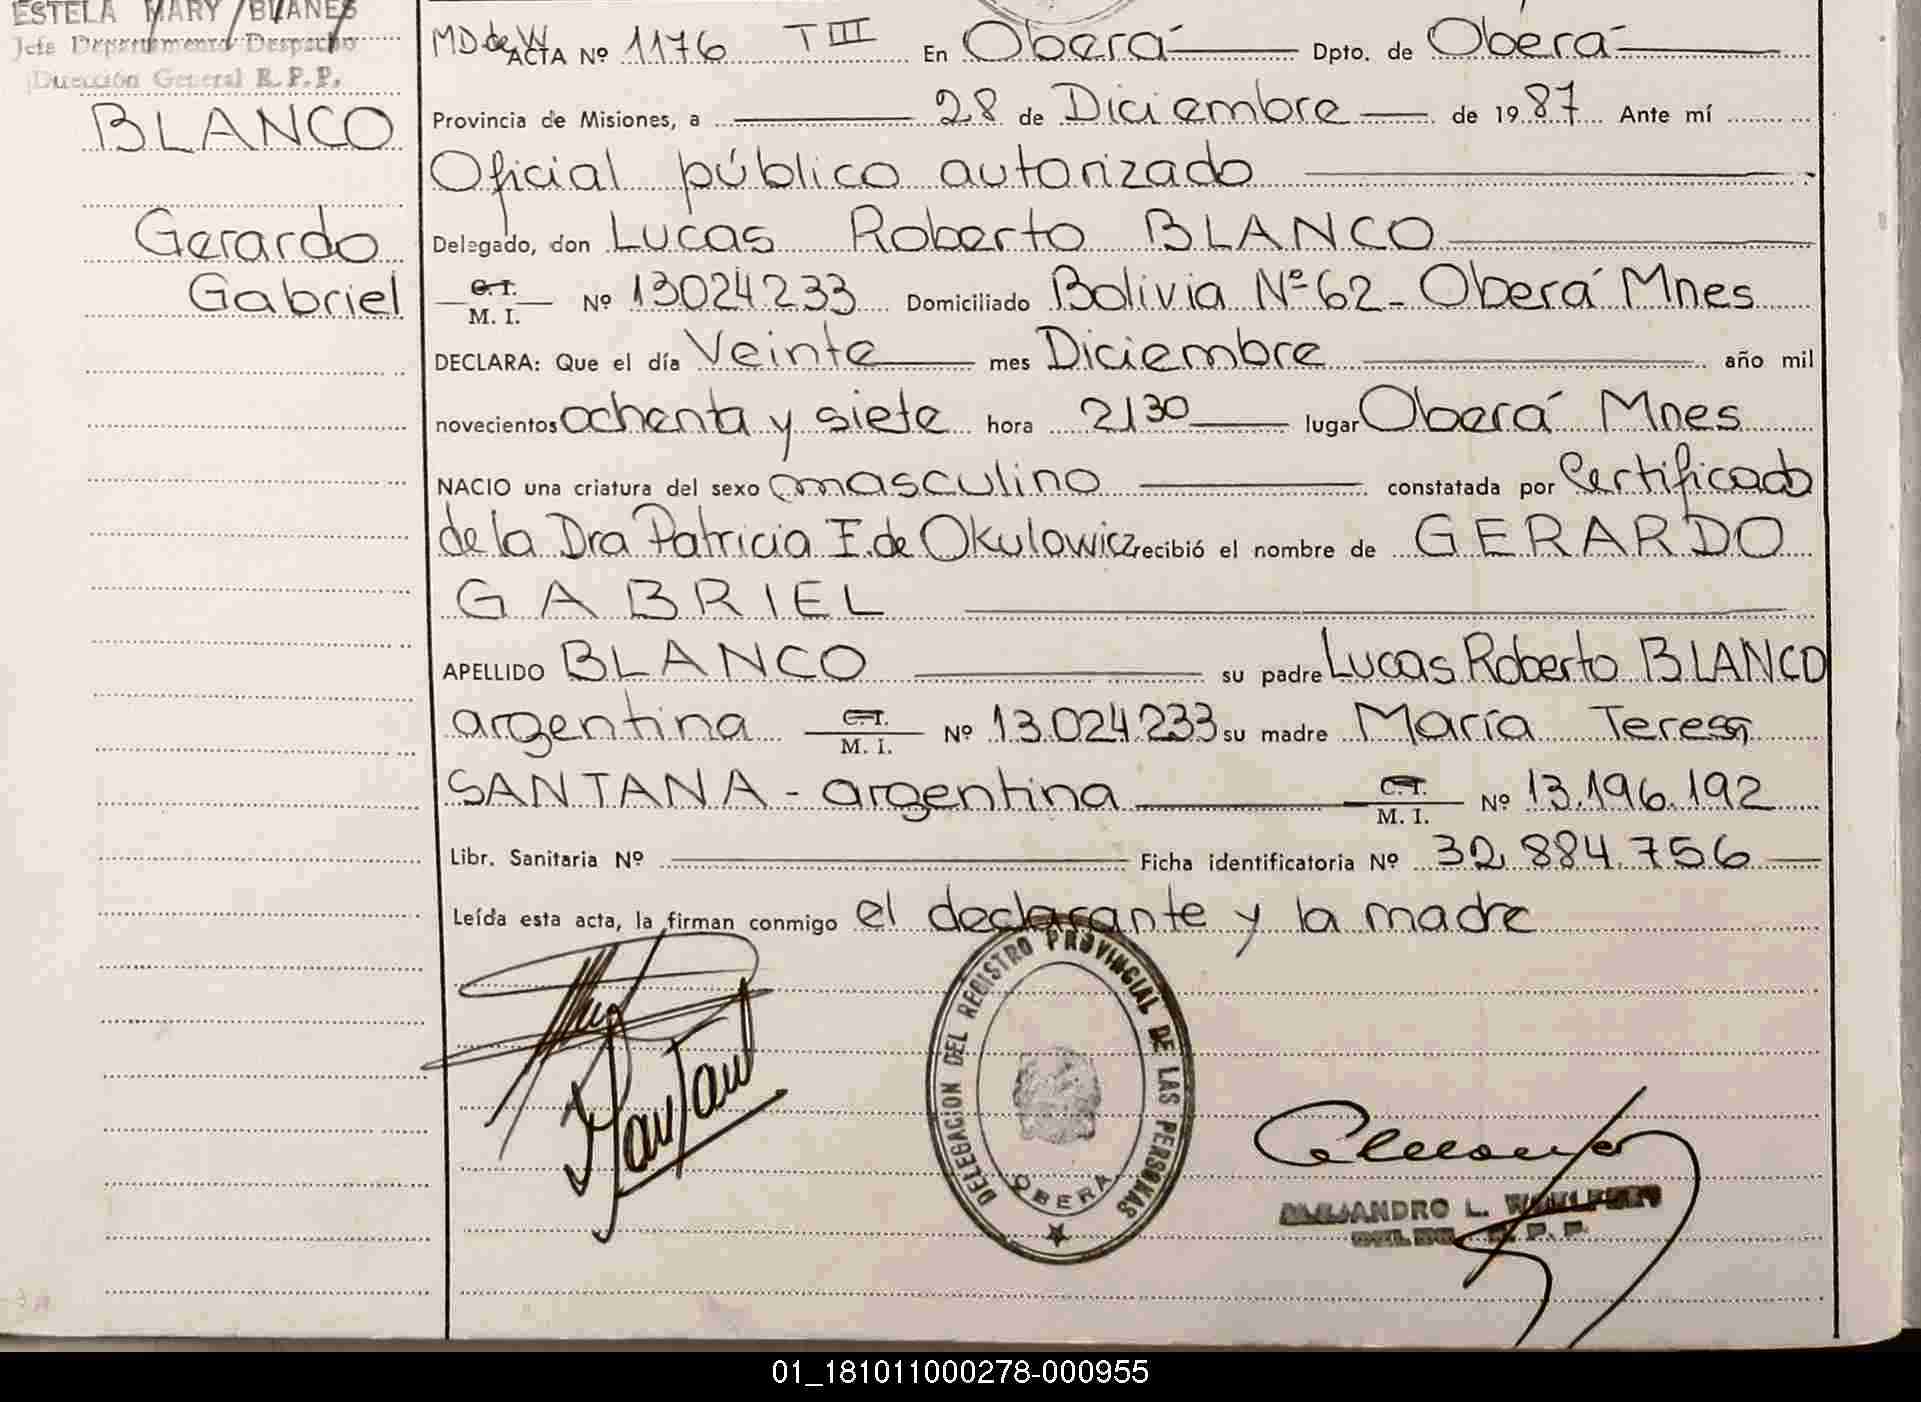 ESTELA MARY BLANES
Jefe Departamento Despacho
Dirección General R.P.P.
BLANCO
Gerardo
Gabriel
MD de W ACTA Nº 1176 T III En Oberá Dpto. de Oberá
Provincia de Misiones, a 28 de Diciembre de 1987 Ante mí
Oficial público autorizado
Delegado, don Lucas Roberto BLANCO
C.I. M. I. Nº 13024233 Domiciliado Bolivia Nº 62 - Oberá Mnes
DECLARA: Que el día Veinte mes Diciembre año mil
novecientos ochenta y siete hora 21 30 lugar Oberá Mnes
NACIO una criatura del sexo masculino constatada por Certificado
de la Dra Patricia F. de Okulowicz recibió el nombre de GERARDO
GABRIEL
APELLIDO BLANCO su padre Lucas Roberto BLANCO
argentina C.I. M. I. Nº 13.024.233 su madre María Teresa
SANTANA - argentina C.I. M. I. Nº 13.196.192
Libr. Sanitaria Nº Ficha identificatoria Nº 32.884.756
Leída esta acta, la firman conmigo el declarante y la madre
DELEGACION DEL REGISTRO PROVINCIAL DE LAS PERSONAS
OBERA
ALEJANDRO L.
01_181011000278-000955